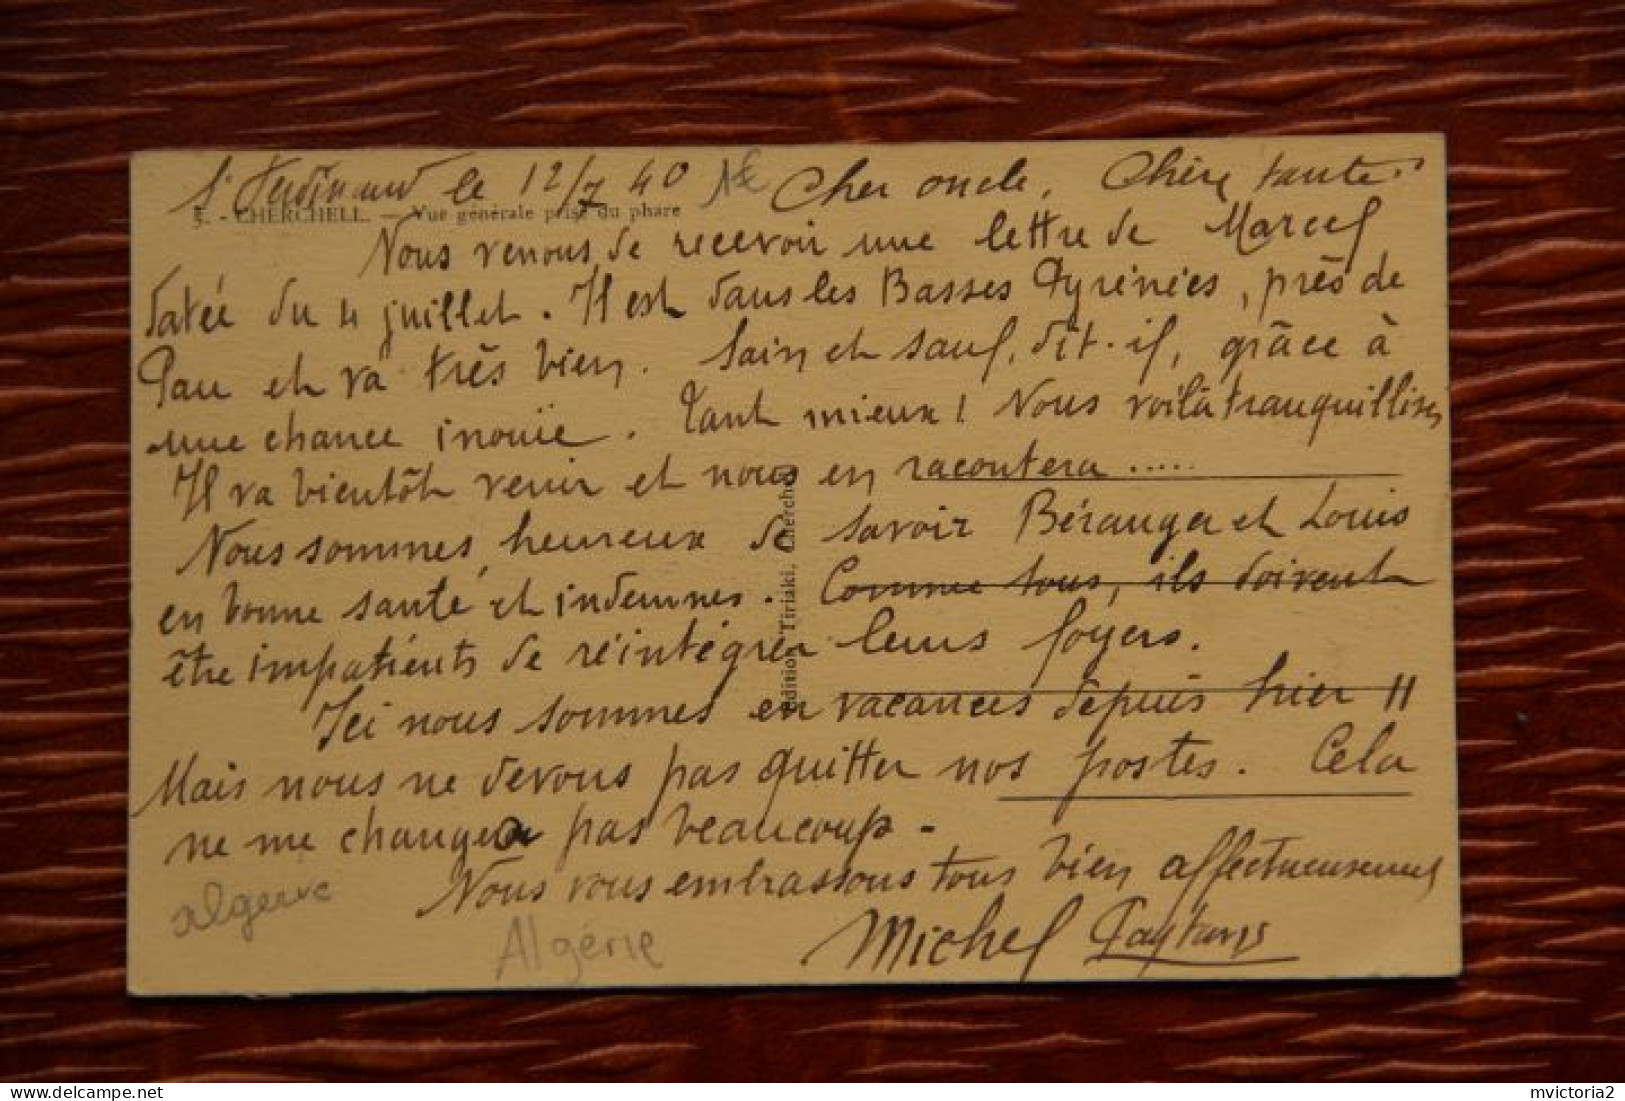 St Ferdinand le 12/7 40 Cher oncle, Chère tante
5. - CHERCHELL. — Vue générale prise du phare
Nous venons de recevoir une lettre de Marcel
datée du 4 juillet. Il est dans les Basses Pyrénées, près de
Pau et va très bien. Sain et sauf, dit-il, grâce à
une chance inouïe. Tant mieux! Nous voilà tranquillisés
Il va bientôt venir et nous en racontera .....
Nous sommes heureux de savoir Béranger et Louis
en bonne santé et indemnes. Comme tous, ils doivent
être impatients de réintégrer leurs foyers.
Ici nous sommes en vacances depuis hier !!
Mais nous ne devons pas quitter nos postes. Cela
ne me changera pas beaucoup -
Nous vous embrassons tous bien affectueusement
Michel
algerie
Algérie
Edition Tiriaki, Cherchell
mvictoria2